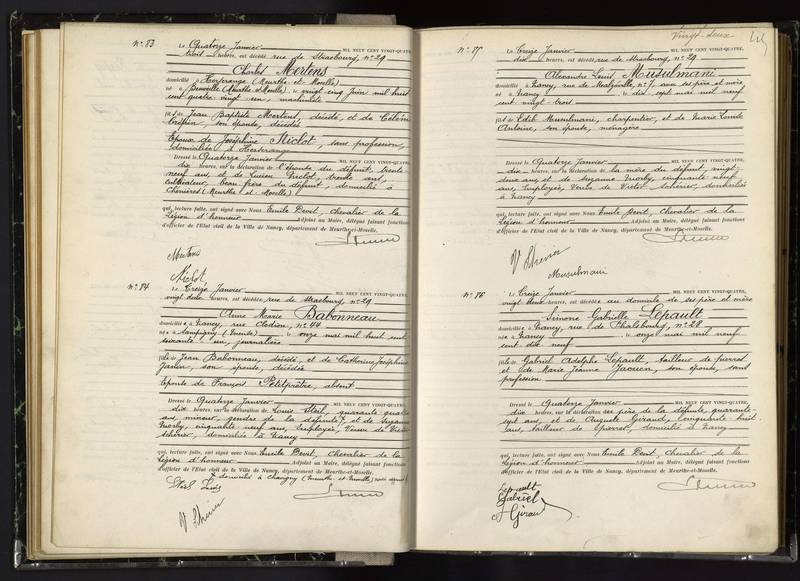 N° 83
Le Quatorze Janvier MIL NEUF CENT VINGT-QUATRE,
trois heures, est décédé rue de Strasbourg, n° 29
Charles Mertens
domicilié à Herserange (Meurthe et Moselle)
né à (Meurthe et Moselle) le vingt cinq Juin mil huit
cent quatre vingt un, machiniste
fils de Jean Baptiste Mertens, décédé, et de
son épouse, décédée
Epoux de Joséphine Niclot, sans profession,
domiciliée à Herserange
Dressé le Quatorze Janvier MIL NEUF CENT VINGT-QUATRE,
dix heures, sur la déclaration de l'épouse du défunt, trente
neuf ans et de Lucien Niclot, trente ans,
cultivateur, beau frère du défunt, domicilié à
Chénières (Meurthe et Moselle)
qui, lecture faite, ont signé avec Nous Emile Devit, Chevalier de la
Légion d'honneur Adjoint au Maire, délégué faisant fonctions
d'officier de l'Etat civil de la Ville de Nancy, département de Meurthe-et-Moselle.
Mertens
Niclot
N° 84
Le Treize Janvier MIL NEUF CENT VINGT-QUATRE,
vingt deux heures, est décédée rue de Strasbourg, n° 29
Anne Marie Babonneau
domiciliée à Nancy, rue Clodion, n° 44
née à le onze mai mil huit cent
soixante un, journalière
fille de Jean Babonneau, décédé, et de Catherine Joséphine
son épouse, décédée
Epouse de François Petitprêtre, absent
Dressé le Quatorze Janvier MIL NEUF CENT VINGT-QUATRE,
dix heures, sur la déclaration de Louis quarante quatre
ans, mineur, gendre de la défunte, et de Suzanne
cinquante neuf ans, employée, Veuve de Victor
domiciliée à Nancy
qui, lecture faite, ont signé avec Nous Emile Devit, Chevalier de la
Légion d'honneur Adjoint au Maire, délégué faisant fonctions
d'officier de l'Etat civil de la Ville de Nancy, département de Meurthe-et-Moselle.
domicilié à Chavigny (Meurthe et Moselle)
Vingt-deux
N° 85
Le Treize Janvier MIL NEUF CENT VINGT-QUATRE,
dix heures, est décédé rue de Strasbourg, n° 29
Alexandre Louis Musulmani
domicilié à Nancy, rue de Malzéville, n° 7, son père et mère
né à Nancy le dix sept mai mil neuf
cent vingt trois
fils de Edib Musulmani, charpentier, et de Marie Louise
Antoine, son épouse, ménagère
Dressé le Quatorze Janvier MIL NEUF CENT VINGT-QUATRE,
dix heures, sur la déclaration de la mère du défunt, vingt
deux ans et de Suzanne cinquante neuf
ans, employée, Veuve de Victor domiciliées
à Nancy
qui, lecture faite, ont signé avec Nous Emile Devit, Chevalier de la
Légion d'honneur Adjoint au Maire, délégué faisant fonctions
d'officier de l'Etat civil de la Ville de Nancy, département de Meurthe-et-Moselle.
Musulmani
N° 86
Le Treize Janvier MIL NEUF CENT VINGT-QUATRE,
vingt deux heures, est décédée au domicile de ses père et mère
Simone Gabrielle Lepault
domiciliée à Nancy, rue de Phalsbourg, n° 28
née à Nancy le onze mai mil neuf
cent dix neuf
fille de Gabriel Adolphe Lepault, tailleur de pierres
et de Marie Jeanne Jaouen, son épouse, sans
profession
Dressé le Quatorze Janvier MIL NEUF CENT VINGT-QUATRE,
dix heures, sur la déclaration du père de la défunte, quarante-
sept ans, et de Giraud, cinquante huit
ans, tailleur de pierres, domicilié à Nancy
qui, lecture faite, ont signé avec Nous Emile Devit, Chevalier de la
Légion d'honneur Adjoint au Maire, délégué faisant fonctions
d'officier de l'Etat civil de la Ville de Nancy, département de Meurthe-et-Moselle.
Lepault
Gabriel
Giraud